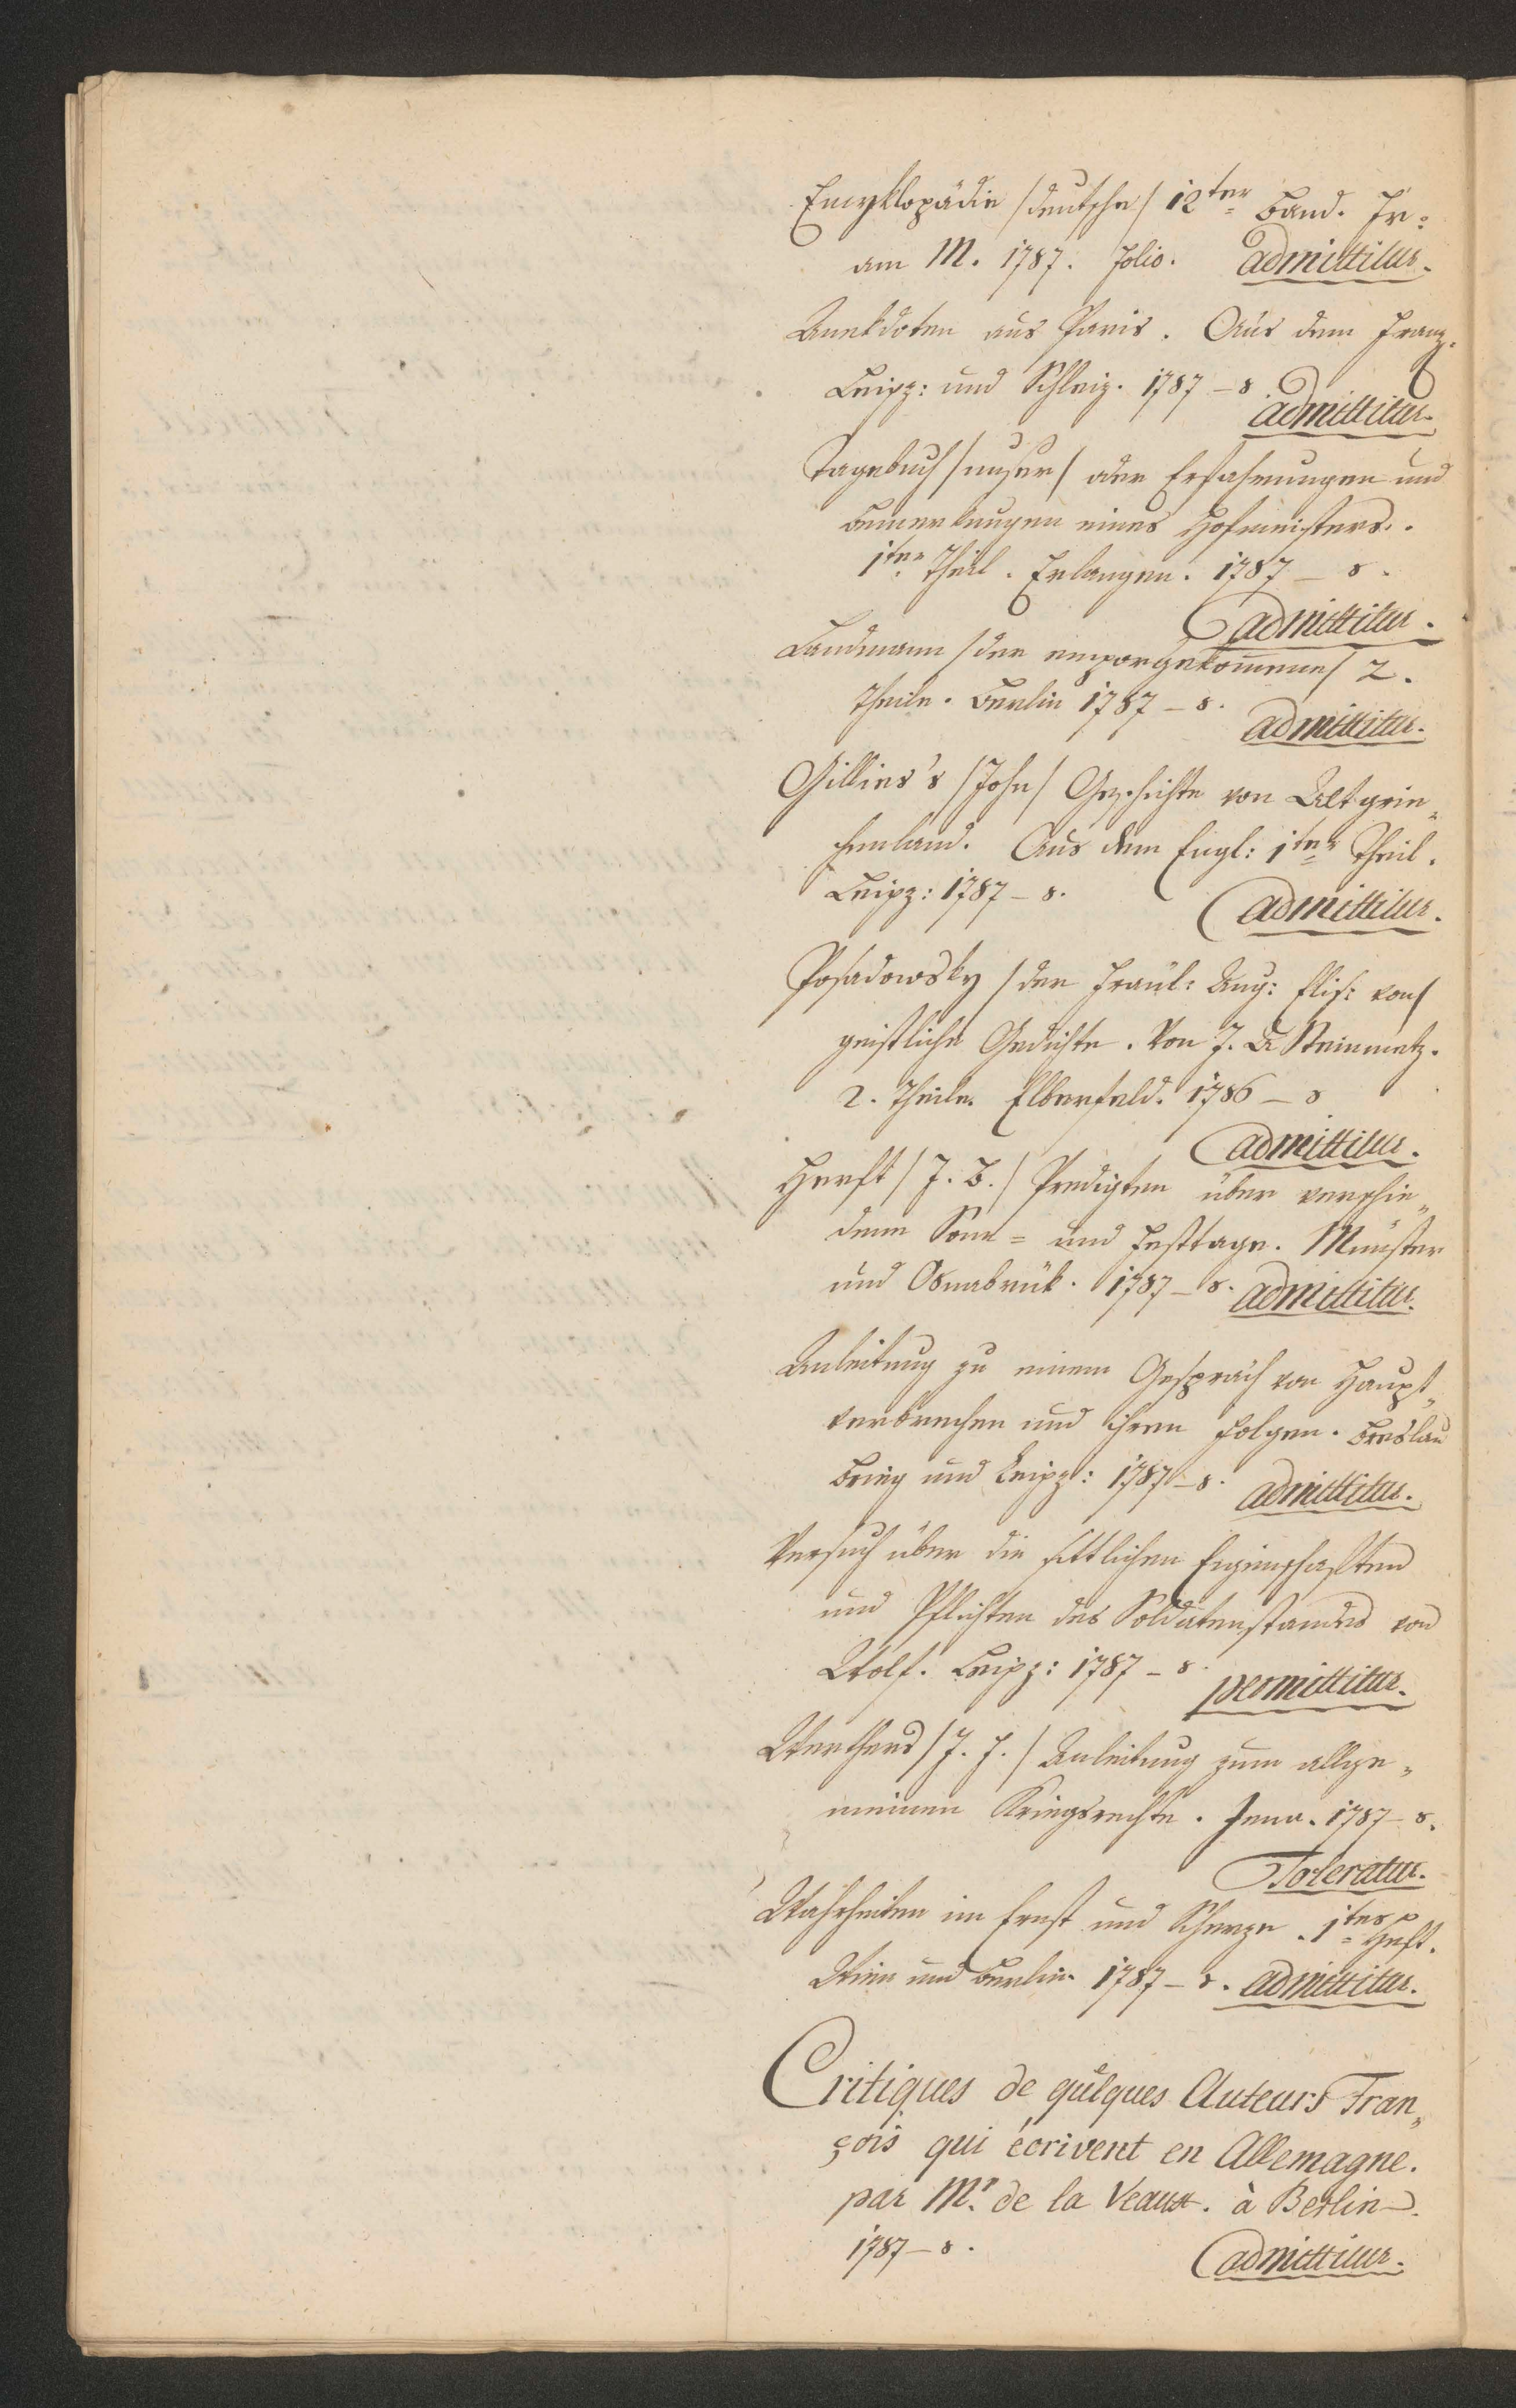 Encyklopädie /deutsche/ 12ter Band. Fr:
am M. 1787. Folio. admittitur.
Anekdoten aus Paris. Aus dem Franz.
Leipz: und Schleiz. 1787 – 8. admittitur.
Tagebuch /unser/ oder Erfahrungen und
Bemerkungen eines Hofmeisters.
1ter Theil. Erlangen. 1787 – 8.
admittitur.
Landmann /der emporgekom̄ene/ 2.
Theile. Berlin 1787 – 8. admittitur.
Gillies's /John/ Geschichte von Altgrie„
chenland. Aus dem Engl: 1ter Theil.
Leipz: 1787 – 8. admittitur.
Posadowsky /der Fraül: Aug: Elis: von/
geistliche Gedichte. Von J. A Steinmetz.
2. Theile. Elberfeld. 1786 – 8
admittitur.
Herft /J. B./ Predigten über verschie„
dene Sonn= und Festtage. Münster
und Osnabrük. 1787 – 8. admittitur.
Anleitung zu einem Gespräch von Haupt„
verbrechen und ihren Folgen. Breslau
Brieg und Leipz: 1787 – 8. admittitur.
Versuch über die sittlichen Eigenschaften
und Pflichten des Soldatenstandes von
Wolf. Leipz: 1787 – 8. permittitur.
Werthers /J. J./ Anleitung zum allge„
meinen Kriegsrechte. Jena. 1787 – 8.
Toleratur.
Wahrheiten im Ernst und Scherze. 1tes Heft.
Wien und Berlin. 1787 – 8. admittitur.
Critiques de qulques Auteurs Fran„
çois qui écrivent en Allemagne.
par Mr. de la Veaux. à Berlin.
1787 – 8. admittitur.